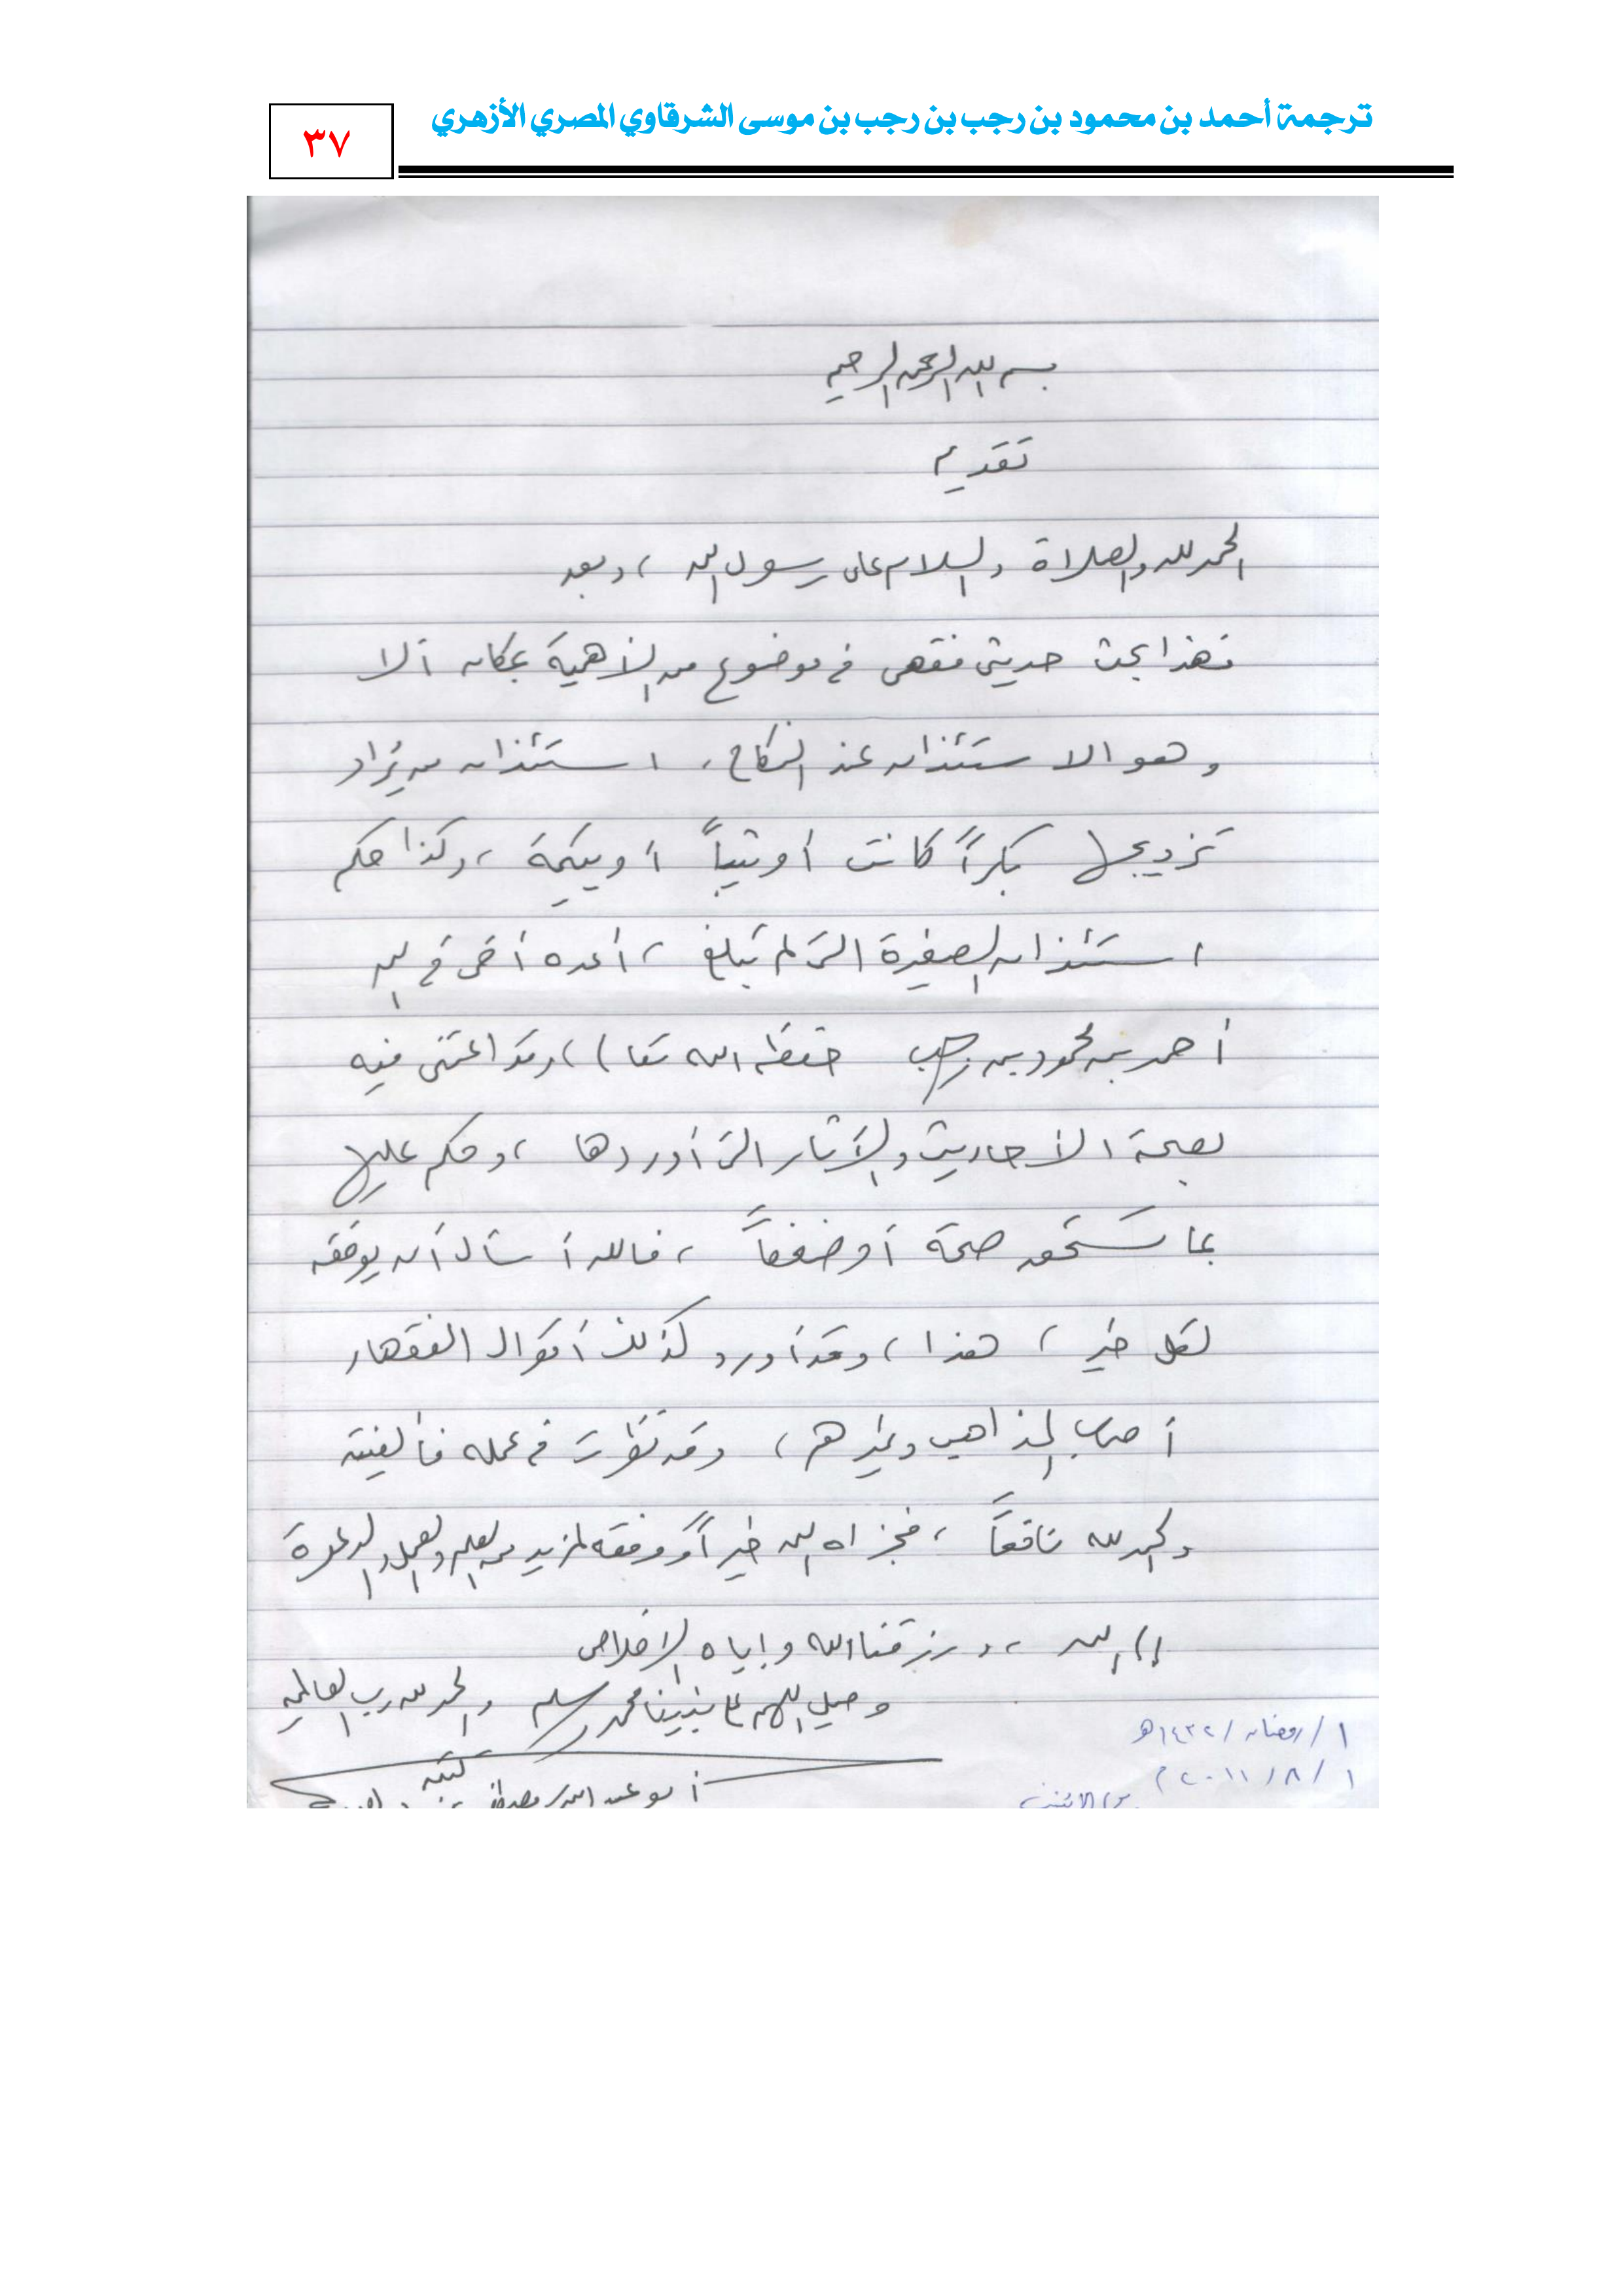 ترجمة أحمد بن محمود بن رجب بن رجب بن موسى الشرقاوي المصري الأزهري
٣٧
بسم الله الرحمن الرحيم
تقديم
الحمد لله والصلاة والسلام على رسول الله ، وبعد
فهذا بحث حديثي فقهي في موضوع من الأهمية بمكان ألا
وهو الاستئذان عند النكاح ، استئذان من يُراد
تزويجها بكراً كانت أو ثيباً أو يتيمة ، وكذا حكم
استئذان الصغيرة التي لم تبلغ ، أعده أخي في الله
أحمد بن محمود بن رجب حفظه الله تعالى ، وقد اعتنى فيه
بصحة الأحاديث والآثار التي أوردها ، وحكم عليها
بما تستحق صحة أو ضعفاً ، فالله أسأل أن يوفقه
لكل خير ، هذا ، وقد أورد كذلك أقوال الفقهاء
أصحاب المذاهب وغيرهم ، وقد نظرت في عمله فألفيته
والحمد لله نافعاً ، فجزاه الله خيراً ووفقه لمزيد من العلم والعمل والدعوة
إلى الله ، ورزقنا الله وإياه الإخلاص
وصل اللهم على نبينا محمد وسلم والحمد لله رب العالمين
١ / رمضان / ١٤٣٢هـ
كتبه
١ / ٨ / ٢٠١١م
أبو عبد الله مصطفى بن
يوم الاثنين